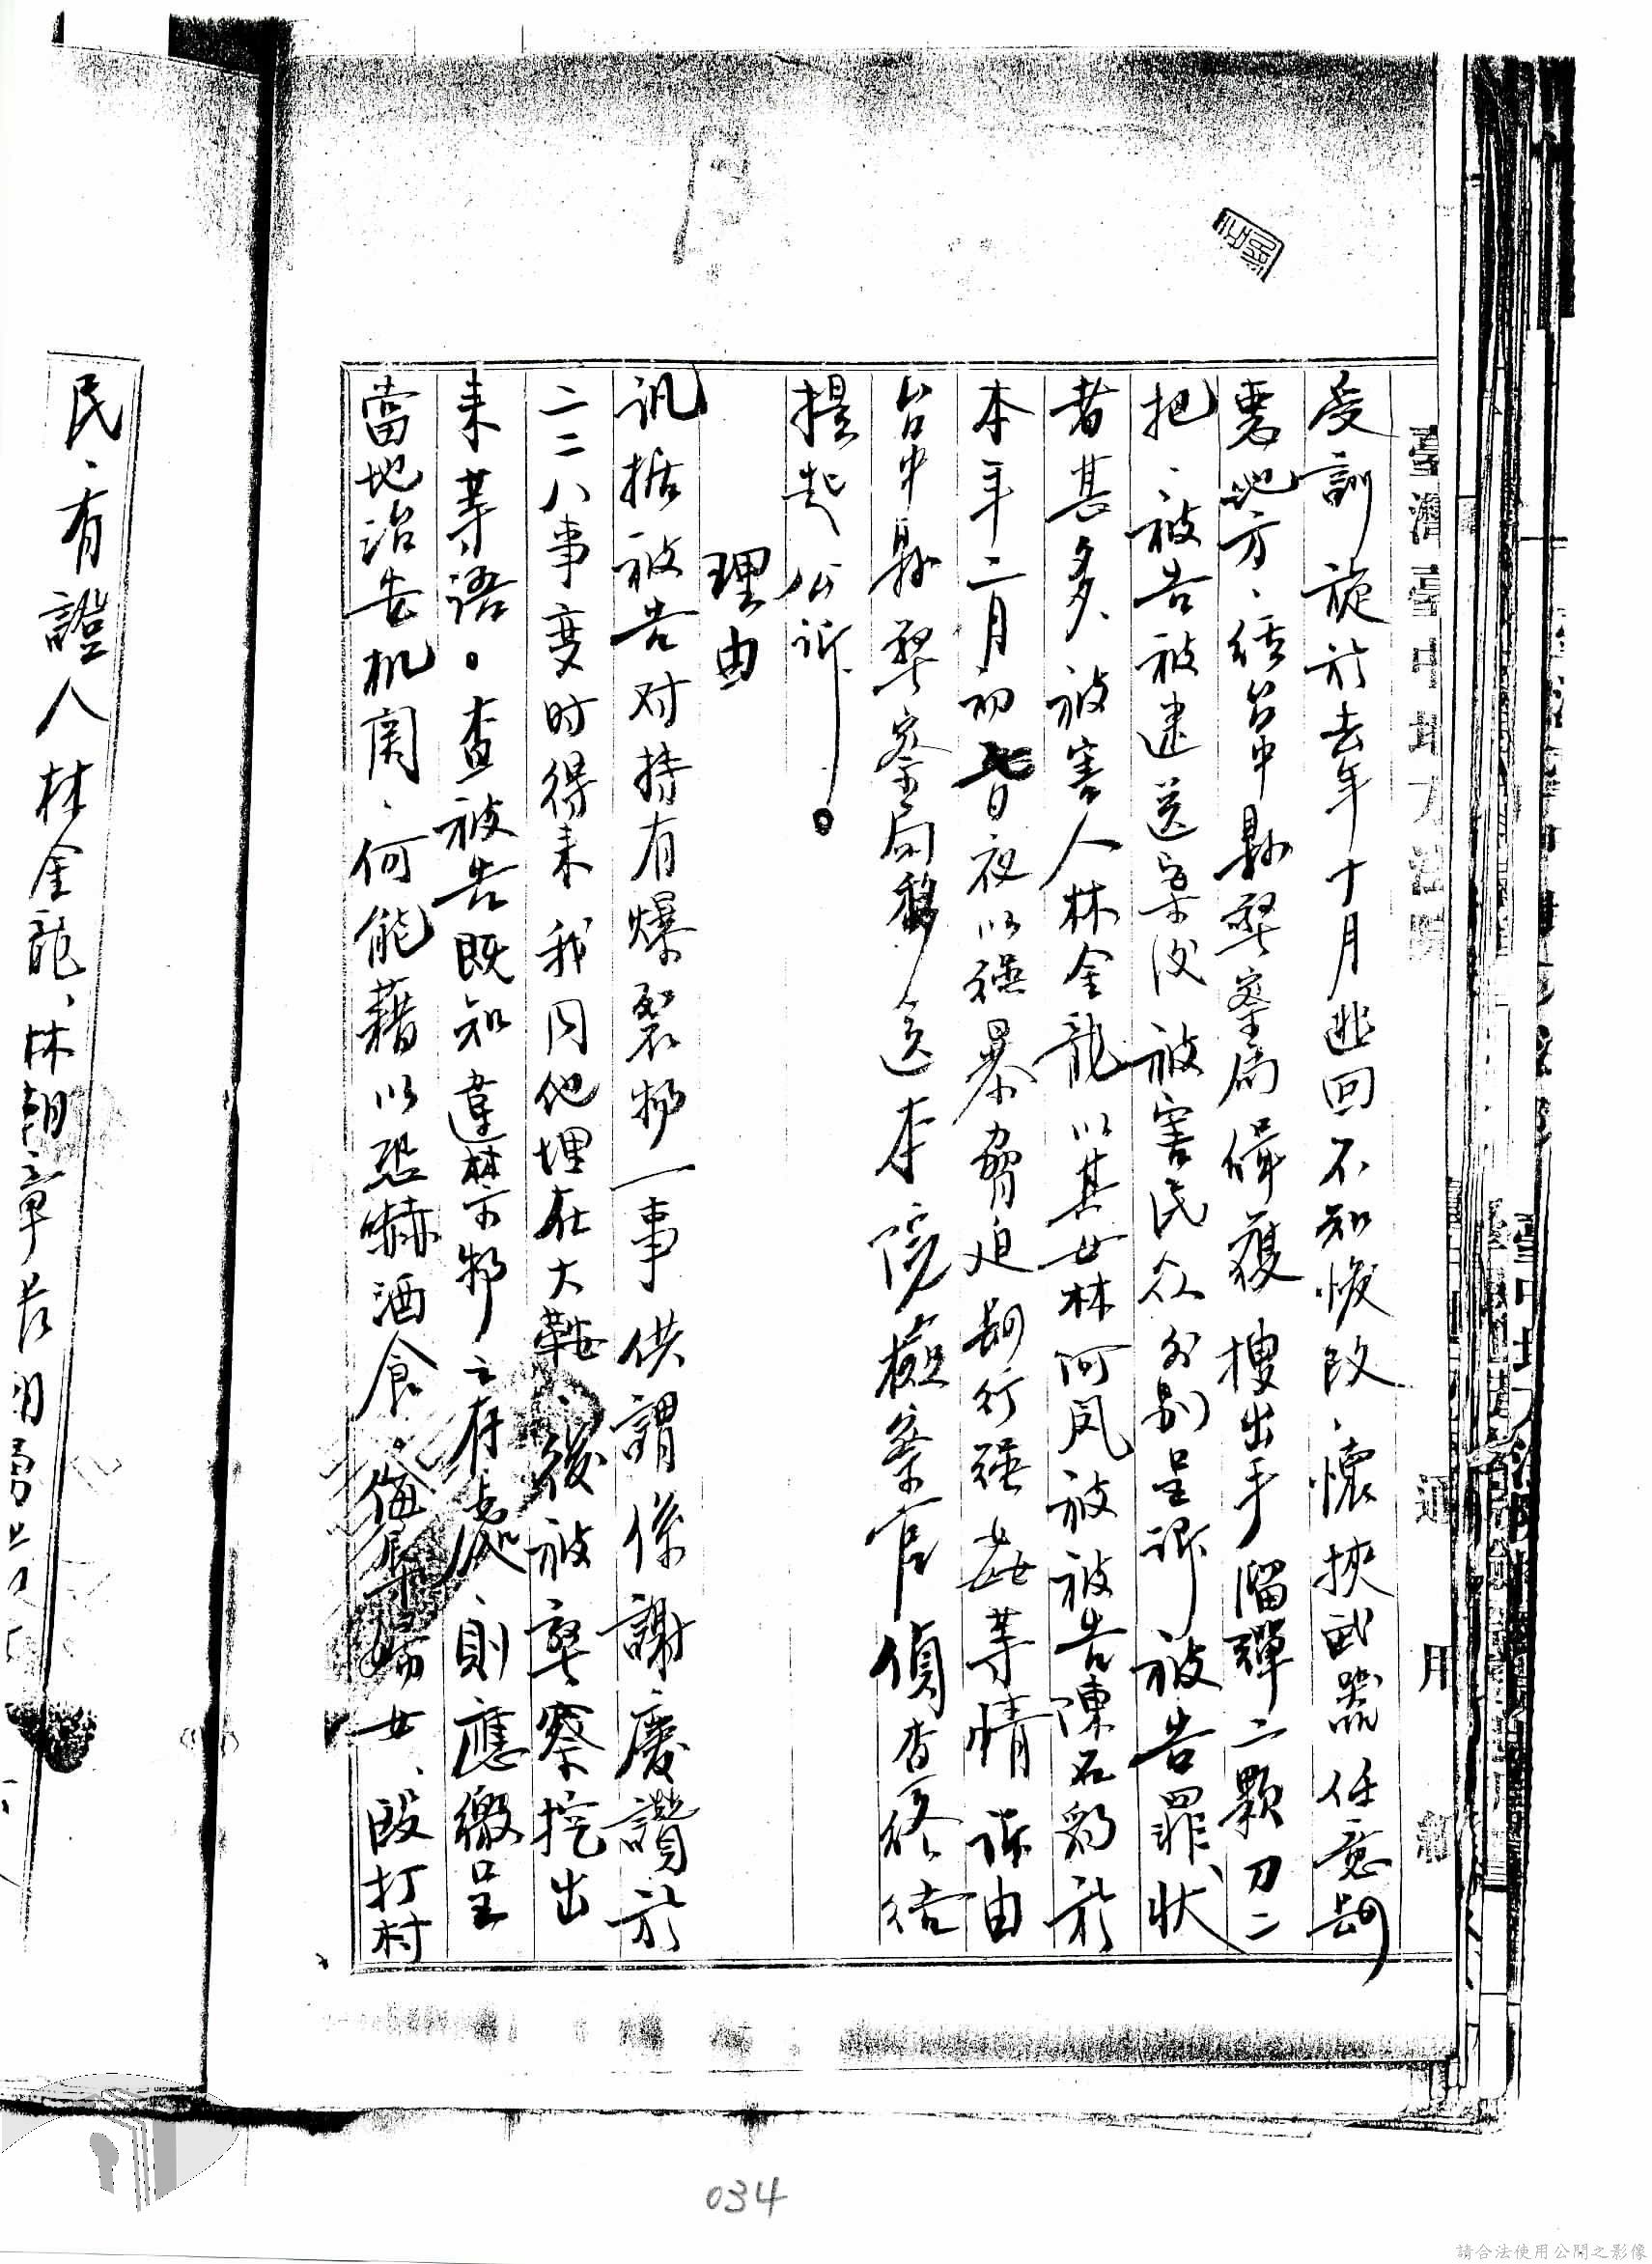 臺灣臺中地方法院
通用紙
受訓旋於去年十月逃回不知悛改、懷挾武器任意
地方、經台中縣警察局緝獲搜出手溜彈二顆刀二
把、被告被逮送案後被害民众分別呈訴被告罪狀
者甚多被害人林金龍以其女林阿凤被被告陳石豹於
本年二月初七日夜以強暴脅迫刧行强姦等情訴由
台中縣警察局移送本院檢察官偵查終结
提起公訴。
理由
訊据被告对持有爆裂物一事供謂係謝慶讚於
二二八事变时得来我同他埋在大鞍、後被警察挖出
来等语。查被告既知違禁物之存處、則應繳呈
當地治安机関、何能藉以恐嚇酒食、侮辱婦女、殴打村
民、有證人林金龍、林朝章
034
請合法使用公開之影像